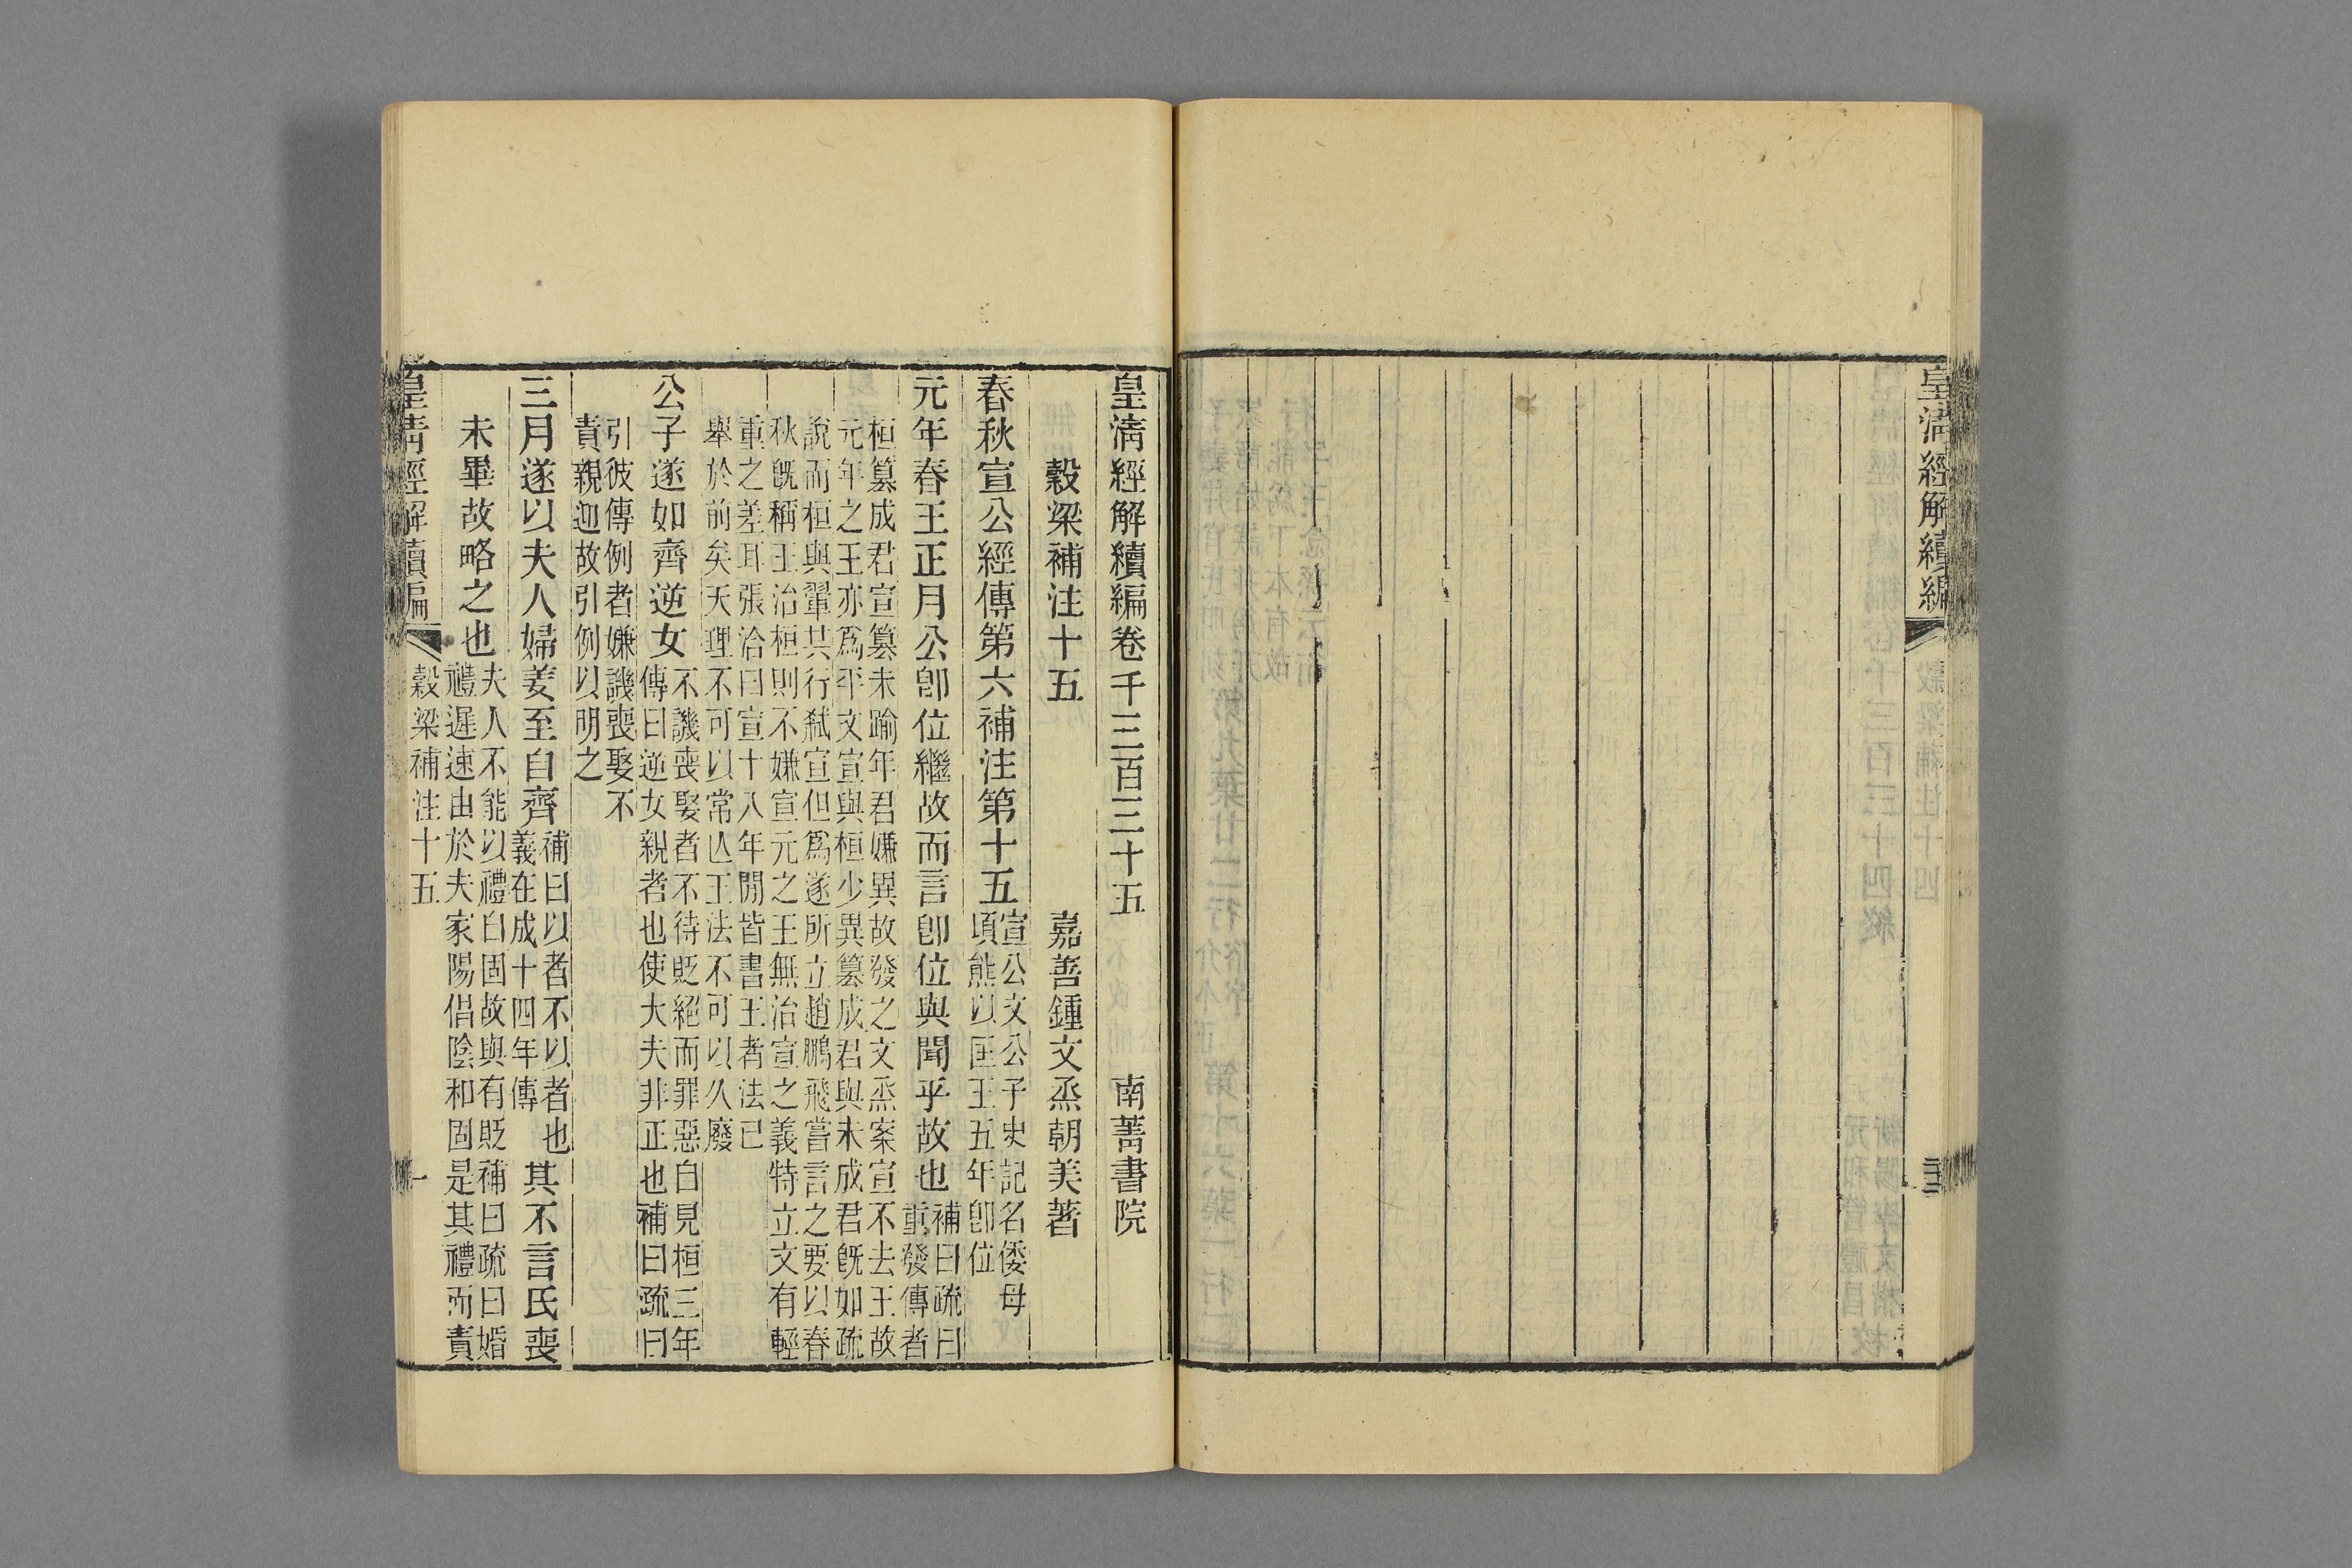 皇清經解續編
皇清經解續編卷千三百三十五 南菁書院
穀梁補注十五 嘉善鍾文烝朝美著
春秋宣公經傳第六補注第十五
宣公文公子史記名倭母
頃熊以匡王五年卽位
元年春王正月公卽位繼故而言卽位與聞乎故也
補曰疏曰
重發傳者
桓篡成君宣篡未踰年君嫌異故發之文烝案宣不去王故
元年之王亦爲平文宣與桓少異篡成君與未成君旣如疏
說而桓與翬共行弒宣但爲遂所立趙鵬飛嘗言之要以春
秋旣稱王治桓則不嫌宣元之王無治宣之義特立文有輕
重之差耳張洽曰宣十八年閒皆書王者法已
舉於前矣天理不可以常亾王法不可以久廢
公子遂如齊逆女
不譏喪娶者不待貶絕而罪惡自見桓三年
傳曰逆女親者也使大夫非正也補曰疏曰
引彼傳例者嫌譏喪娶不
責親迎故引例以明之
三月遂以夫人婦姜至自齊
補曰以者不以者也
義在成十四年傳
其不言氏喪
未畢故略之也
夫人不能以禮自固故與有貶補曰疏曰婚
禮遲速由於夫家陽倡陰和固是其禮而責
皇清經解續編 穀梁補注十五 一